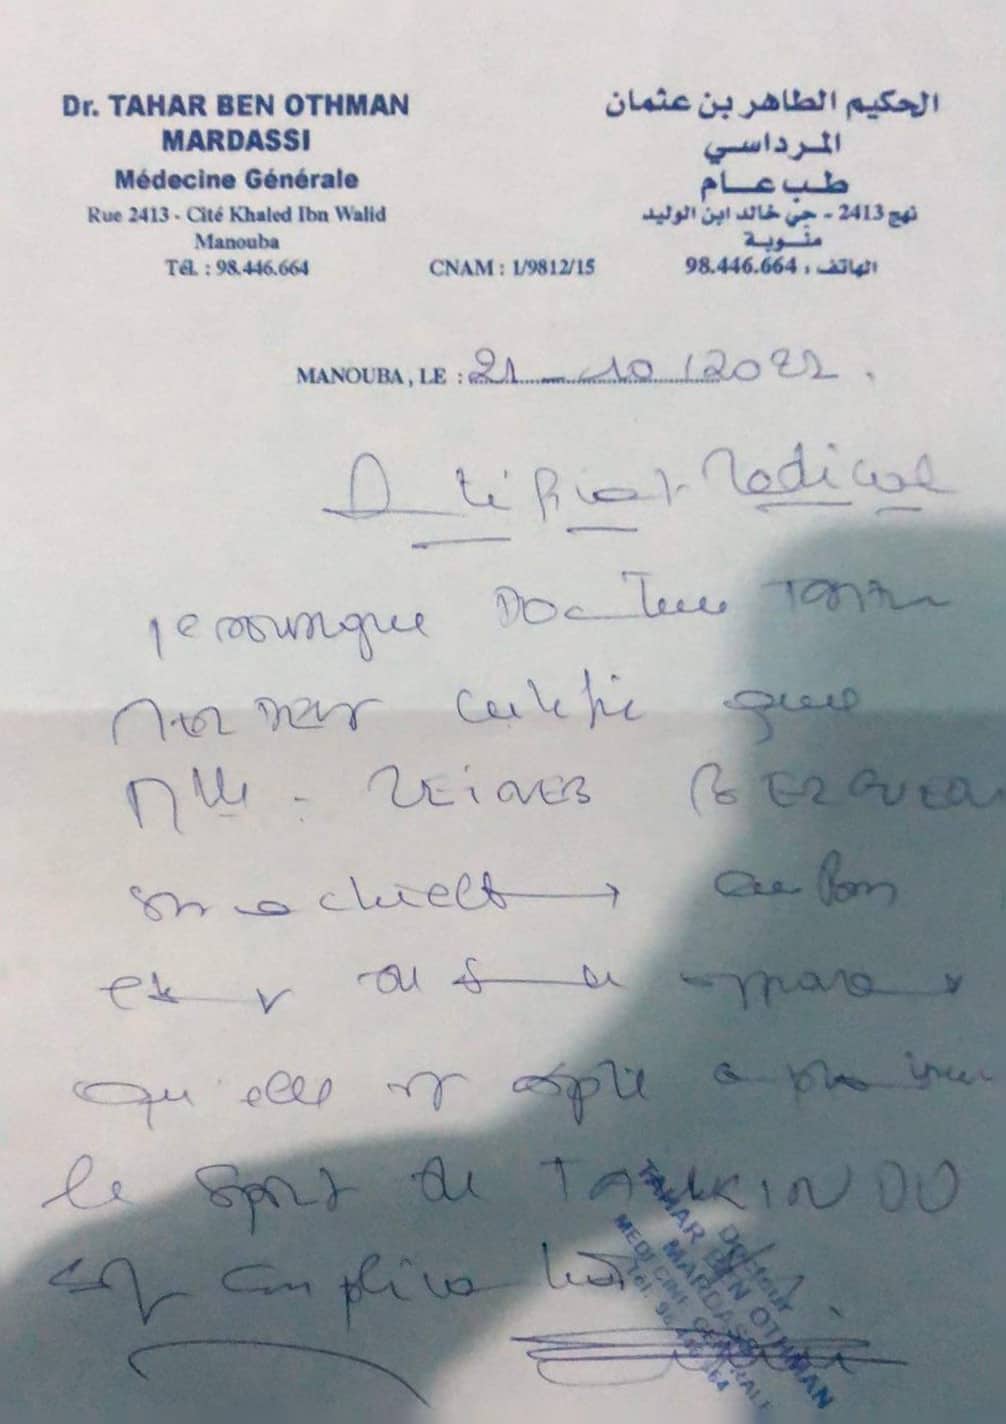 Dr. TAHAR BEN OTHMAN
MARDASSI
Médecine Générale
Rue 2413 - Cité Khaled Ibn Walid
Manouba
Tél. : 98.446.664
الحكيم الطاهر بن عثمان
المرداسي
طب عام
نهج 2413 - حي خالد ابن الوليد
منوبة
الهاتف : 98.446.664
CNAM : 1/9812/15
MANOUBA, LE : 21 - 10 / 2022.
Certificat Medical
Je soussigné Docteur
certifie que
Mlle. ZEINEB
actuellement en bon
état de santé
qu'elle est apte a
le sport de
sauf complication
Docteur
TAHAR BEN OTHMAN
MARDASSI
MEDECINE GENERALE
Tél. 98.446.664